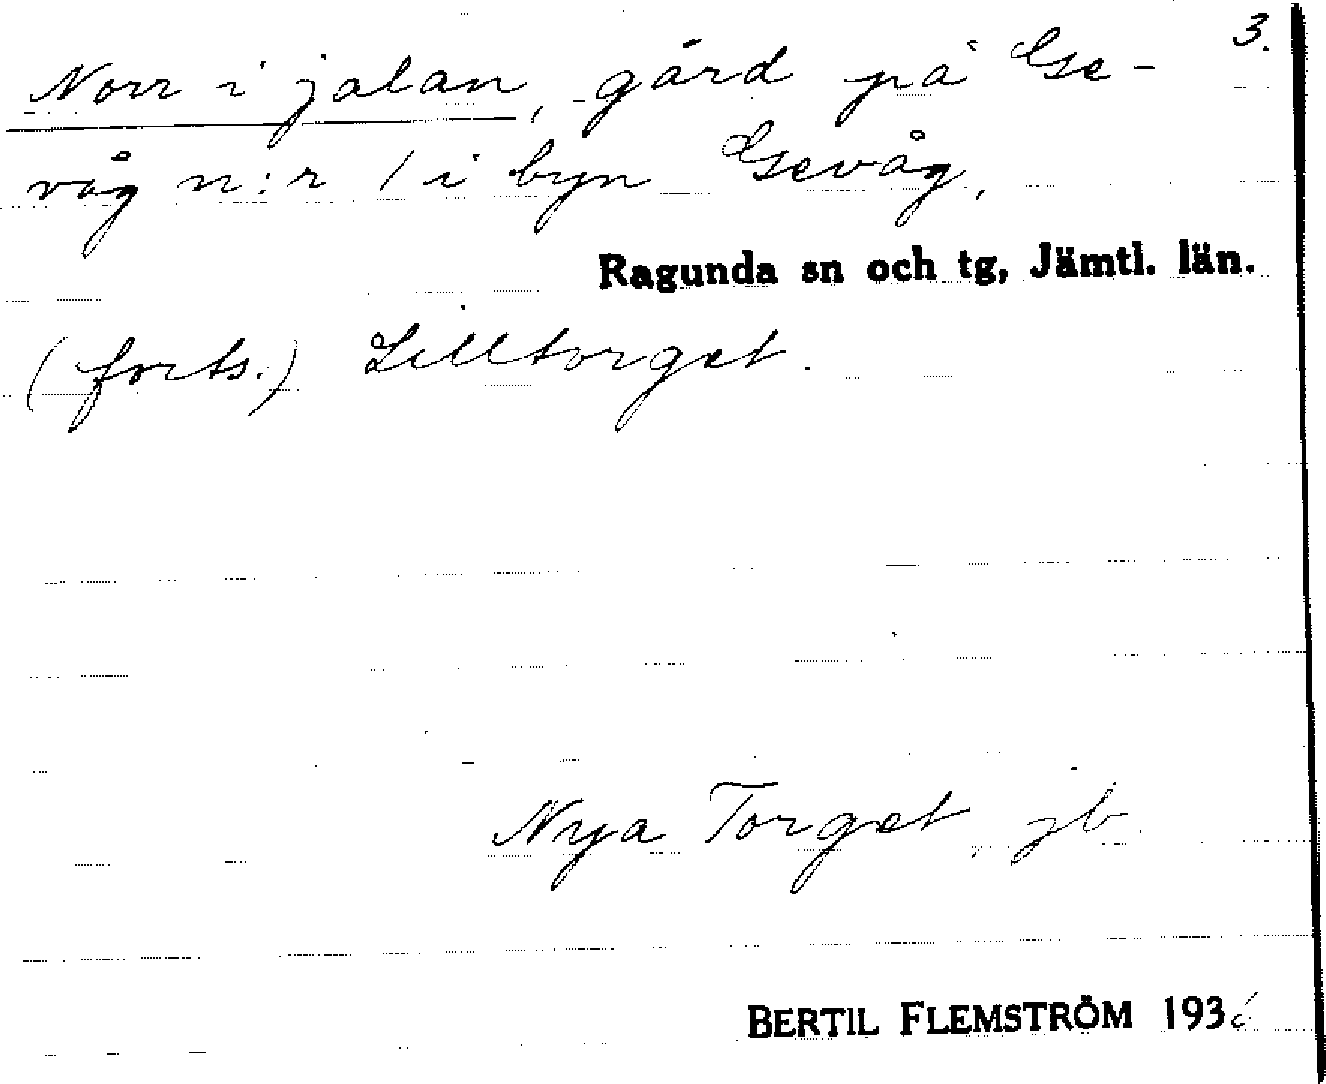 3.
Norr i jalan, gård på Ge-
våg n:r 1 i byn Gevåg,
Ragunda sn och tg, Jämtl. län.
(forts.) Lilltorget.
Nya Torget, jb.
BERTIL FLEMSTRÖM 1936